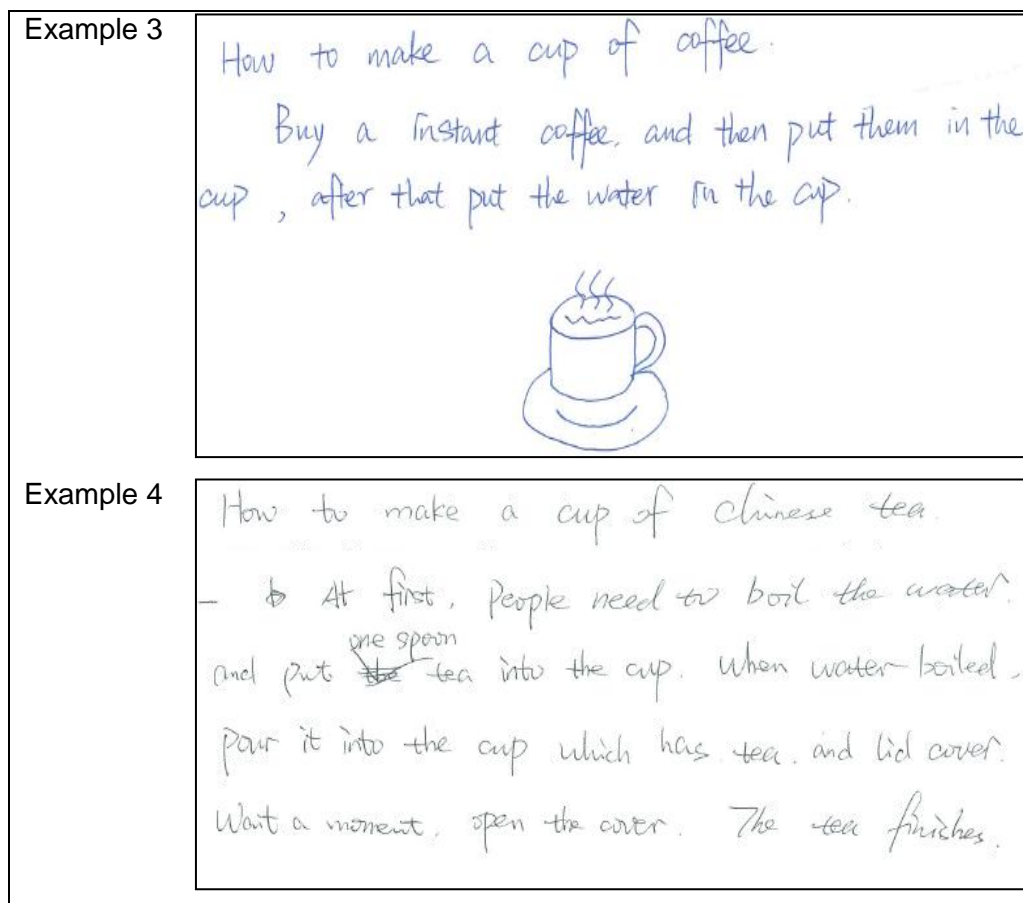 Example 3
How to make a cup of coffee.
Buy a instant coffee, and then put them in the
cup, after that put the water in the cup.
Example 4
How to make a cup of Chinese tea.
At first, People need to boil the water.
and put one spoon tea into the cup. When water boiled,
pour it into the cup which has tea. and lid cover.
Wait a moment, open the cover. The tea finishes.